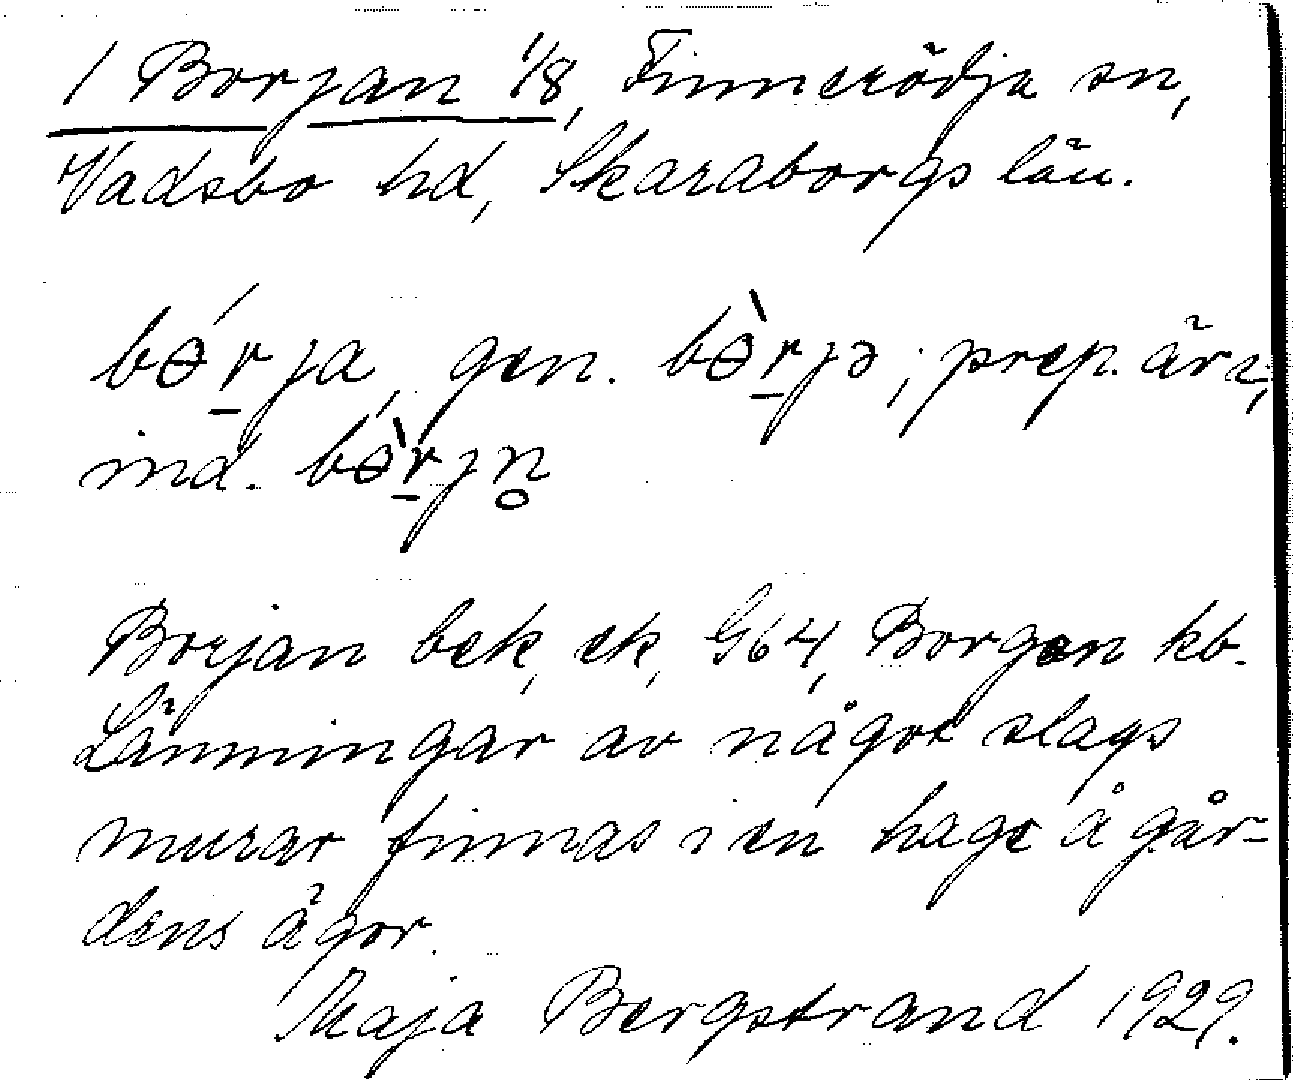 1 Borjan 1/8, Finnerödja sn,
Vadsbo hd, Skaraborgs län.
bɵ́r̠ja, gen. bɵ̀r̠jə; prep. är i,
ind. bɵ̀r̠jn̥
Borjan bek, ek, G64, Borgen kb.
Lämningar av något slags
murar finnas i en hage å går-
dens ägor.
Maja Bergstrand 1929.